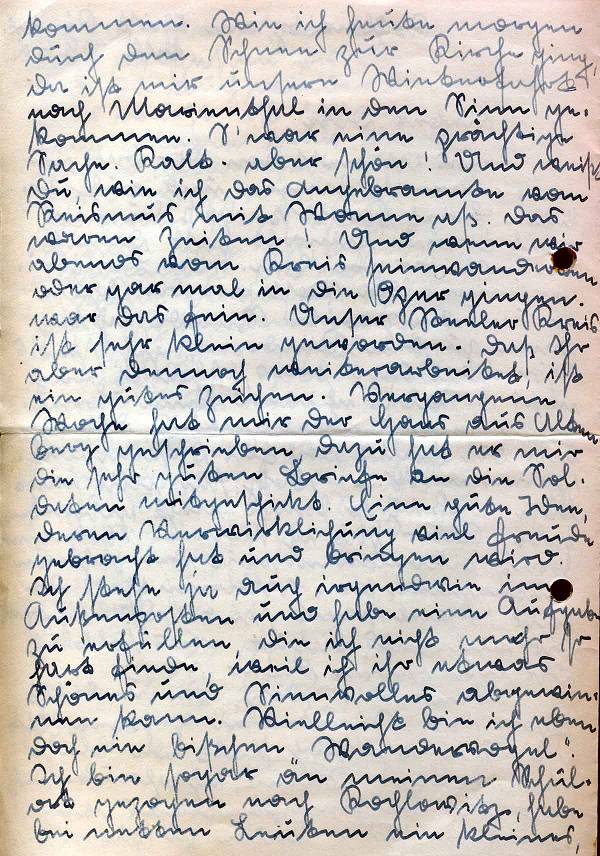 kommen. Wie ich heute morgen
durch den Schnee zur Kirche ging,
da ist mir unsere Winterfahrt
nach Marienthal in den Sinn ge-
kommen. S'war eine prächtige
Sache. Kalt. aber schön! Und weißt
Du, wie ich das Angebrannte vom
mit Wonne aß. Das
waren Zeiten! Und wenn wir
abends vom Kreis heimwanderten
oder gar mal in die Oper gingen.
war das fein. Unser Kreis
ist sehr klein geworden. Daß Ihr
aber dennoch weiterarbeitet, ist
ein gutes Zeichen. Vergangene
Woche hat mir der Hans aus Alten-
berg geschrieben, dazu hat er mir
die sehr guten Briefe an die Sol-
daten mitgeschickt. Eine gute Idee,
deren Verwirklichung viel Freude
gebracht hat und bringen wird.
Ich stehe ja auch irgendwie im
Außenposten und habe eine Aufgabe
zu erfüllen, die ich nicht mehr so
hart finde, weil ich ihr etwas
Schönes und Sinnvolles abgewin-
nen kann. Vielleicht bin ich eben
doch ein bißchen "Wandervogel".
Ich bin sogar an meinen Schul-
ort gezogen nach Kochlowitz, habe
bei netten Leuten ein kleines,